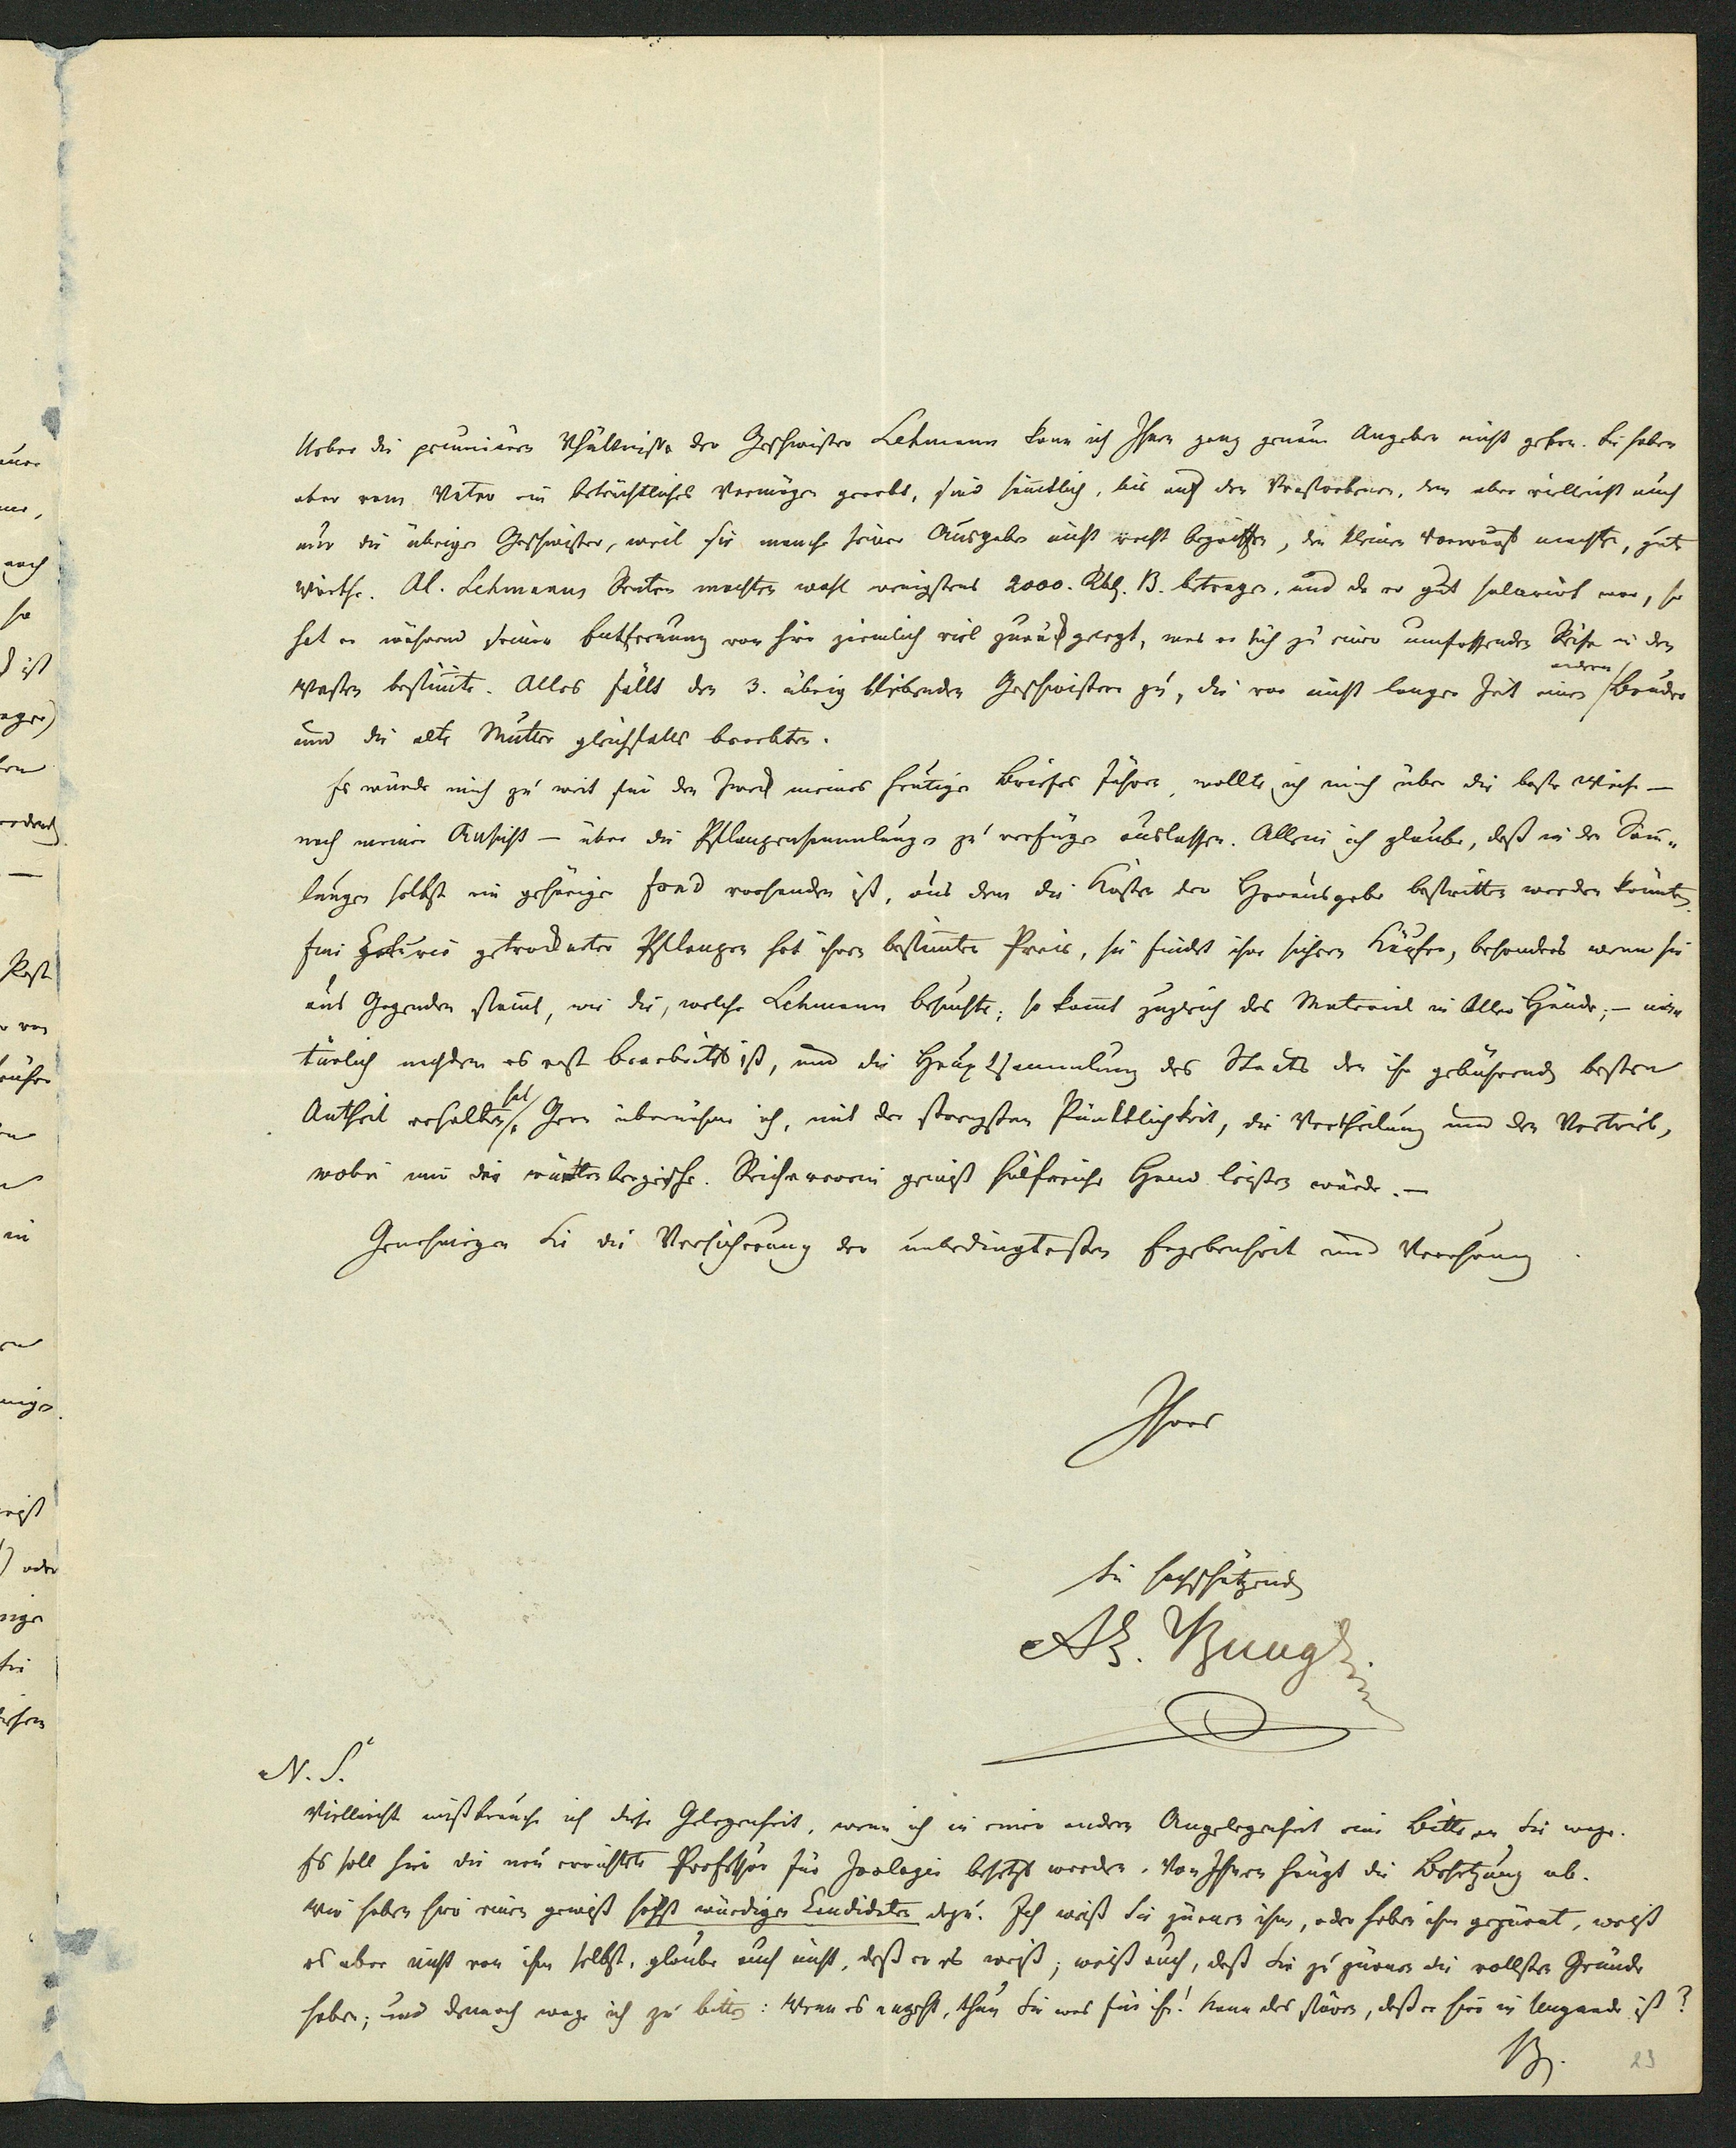 Ueber die pecuniären Vhältnisse der Geschwister Lehmann kann ich Ihnen ganz genaue Angaben nicht geben. Sie haben
aber vom Vater ein beträchtliches Vermögen geerbt, sind sämtlich, bis auf den Verstorbenen, dem aber vielleicht auch
nur die übrigen Geschwister, weil sie manche seiner Ausgaben nicht recht begriffen, den kleinen Vorwurf machten, gute
Wirthe. Al. Lehmanns Renten mochten wohl wenigstens 2000. Rbl. B. betragen, und da er gut salarirt war, so
hat er während seiner Entfernung von hier ziemlich viel zurückgelegt, was er sich zu einer umfassenden Reise in den
Westen bestimte. Alles fällt den 3. übrig bleibenden Geschwistern zu, die vor nicht langer Zeit einen andern Bruder
und die alte Mutter gleichfalls beerbten.
Es würde mich zu weit für den Zweck meines heutigen Briefes führen, wollte ich mich über die beste Weise —
nach meiner Ansicht — über die Pflanzensammlungen zu verfügen auslassen. Allein ich glaube, daß in den Sam„
lungen selbst ein gehöriger Fond vorhanden ist, aus dem die Kosten der Herausgabe bestritten werden könnten.
Eine Centurie getrockneter Pflanzen hat ihren bestimten Preis, sie findet ihre sichern Käufer, besonders wenn sie
aus Gegenden stamt, wie die, welche Lehmann besuchte; so komt zugleich das Material in Aller Hände; — na„
türlich nachdem es erst bearbeitet ist, und die Hauptsammlung des Staats den ihr gebührenden besten
Antheil erhalten hat. Gern übernähme ich, mit der strengsten Pünktlichkeit, die Vertheilung und den Vertrieb,
wobei mir der würtembergische Reiseverein gewiß hülfreiche Hand leisten würde. —
Genehmigen Sie die Versicherung der unbedingtesten Ergebenheit und Verehrung
Ihres
Sie hochschätzenden
Al. Bunge
N. S.
Vielleicht mißbrauche ich diese Gelegenheit, wenn ich in einer andern Angelegenheit eine Bitte an Sie wage.
Es soll hier die neu errichtete Professur für Zoologie besetzt werden. Von Ihnen hängt die Besetzung ab.
Wir haben hier einen gewiß höchst würdigen Candidaten dazu. Ich weiß Sie zürnen ihm, oder haben ihm gezürnt, weiß
es aber nicht von ihm selbst, glaube auch nicht, daß er es weiß; weiß auch, daß Sie zu zürnen die vollsten Gründe
haben; und dennoch wage ich zu bitten: Wenn es angeht, thun Sie was für ihn! Kann das stören, daß er hier in Ungnade ist?
B.
23